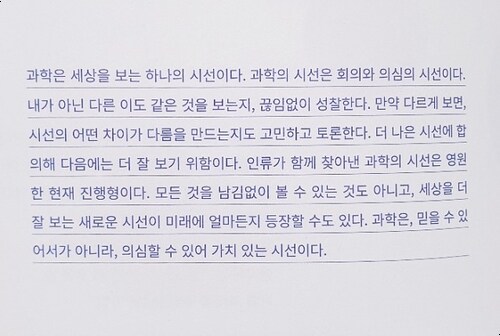 과학은 세상을 보는 하나의 시선이다. 과학의 시선은 회의와 의심의 시선이다.
내가 아닌 다른 이도 같은 것을 보는지, 끊임없이 성찰한다. 만약 다르게 보면,
시선의 어떤 차이가 다름을 만드는지도 고민하고 토론한다. 더 나은 시선에 합
의해 다음에는 더 잘 보기 위함이다. 인류가 함께 찾아낸 과학의 시선은 영원
한 현재 진행형이다. 모든 것을 남김없이 볼 수 있는 것도 아니고, 세상을 더
잘 보는 새로운 시선이 미래에 얼마든지 등장할 수도 있다. 과학은, 믿을 수 있
어서가 아니라, 의심할 수 있어 가치 있는 시선이다.